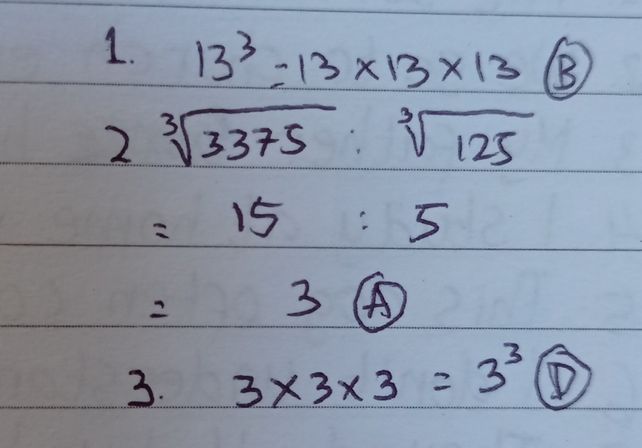 1. 13³ = 13 × 13 × 13 Ⓑ
2 ∛3375 : ∛125
= 15 : 5
= 3 Ⓐ
3. 3×3×3 = 3³ Ⓓ